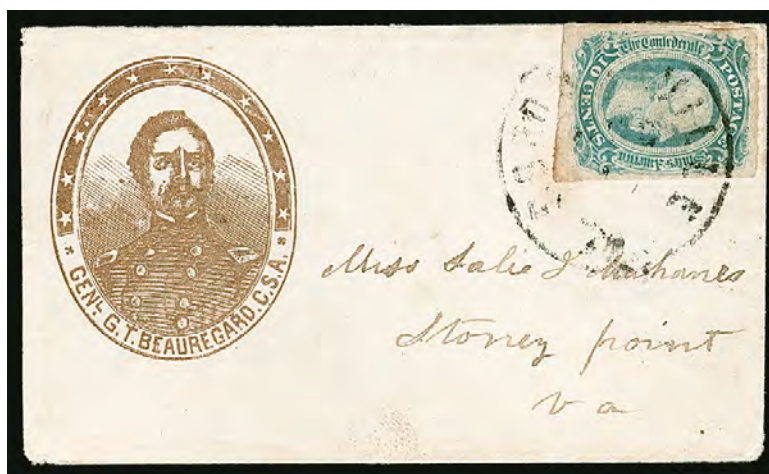 GENL. G.T. BEAUREGARD. C.S.A.
The Confederate
States America
POSTAGE
10 CENTS
Miss Salie J Mahanes
Stoney point
va